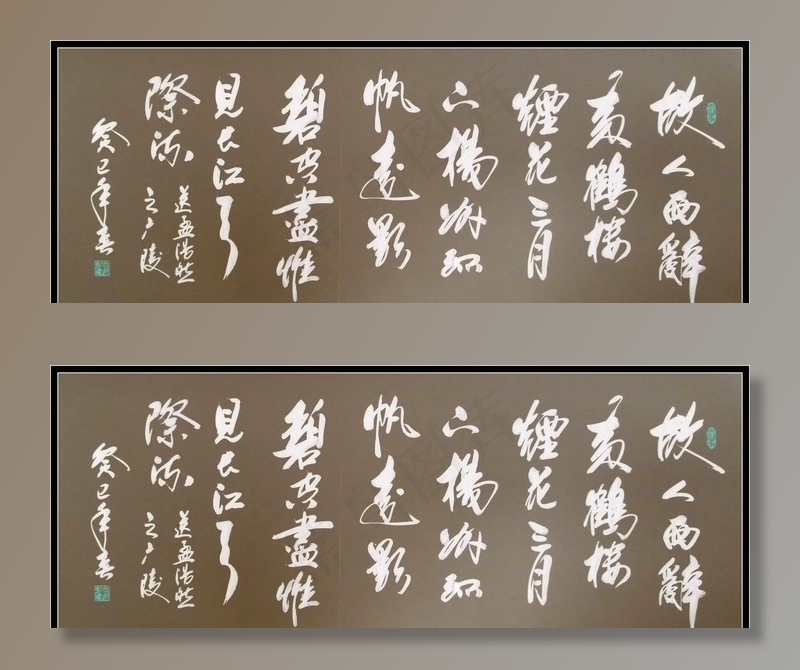 故人西辭
黃鶴樓
煙花三月
下揚州孤
帆遠影
碧空盡惟
見長江天
際流
送孟浩然
之廣陵
癸巳年春
故人西辭
黃鶴樓
煙花三月
下揚州孤
帆遠影
碧空盡惟
見長江天
際流
送孟浩然
之廣陵
癸巳年春